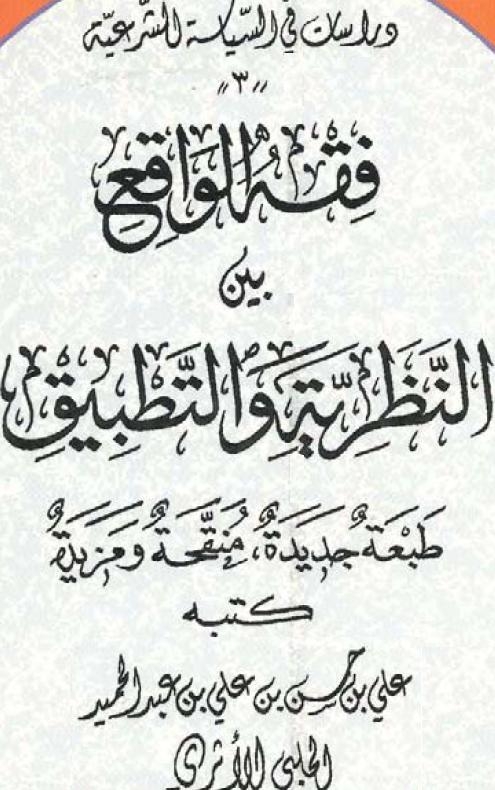 دراسات في السّياسة الشّرعيّة
"٣"
فِقْهُ الوَاقِعِ
بين
النَّظَرِيَّةِ وَالتَّطْبِيقِ
طَبْعَةٌ جَدِيدَةٌ، مُنَقَّحَةٌ وَمَزِيدَةٌ
كتبه
علي بن حسن بن علي بن عبد الحميد
الحلبي الأثري